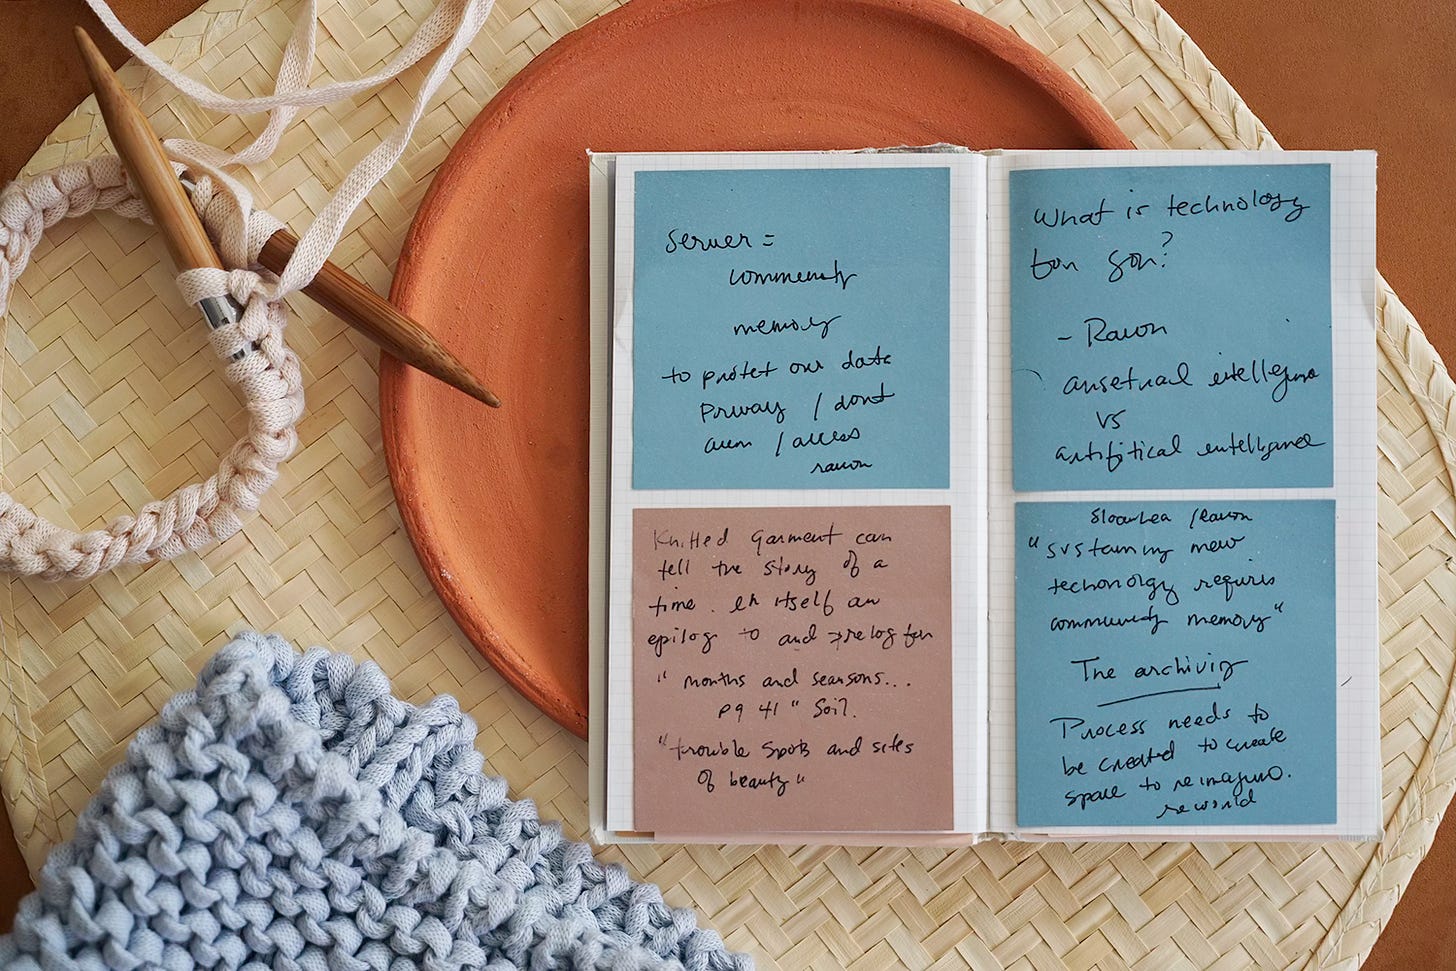 Server =
community
memory
to protect our data
Privacy / dont
/ access
ravon
Knitted Garment can
tell the story of a
time. itself an
epilog to and prelog for
" months and seasons...
pg 41 " Soil.
"trouble spots and sites
of beauty"
What is technology
for you?
- Ravon
ansetral intelligence
vs
artifitical intelligence
/ Ravon
"sustaining new
technology requires
community memory"
The archiving
Process needs to
be created to create
space to reimagine.
reworld